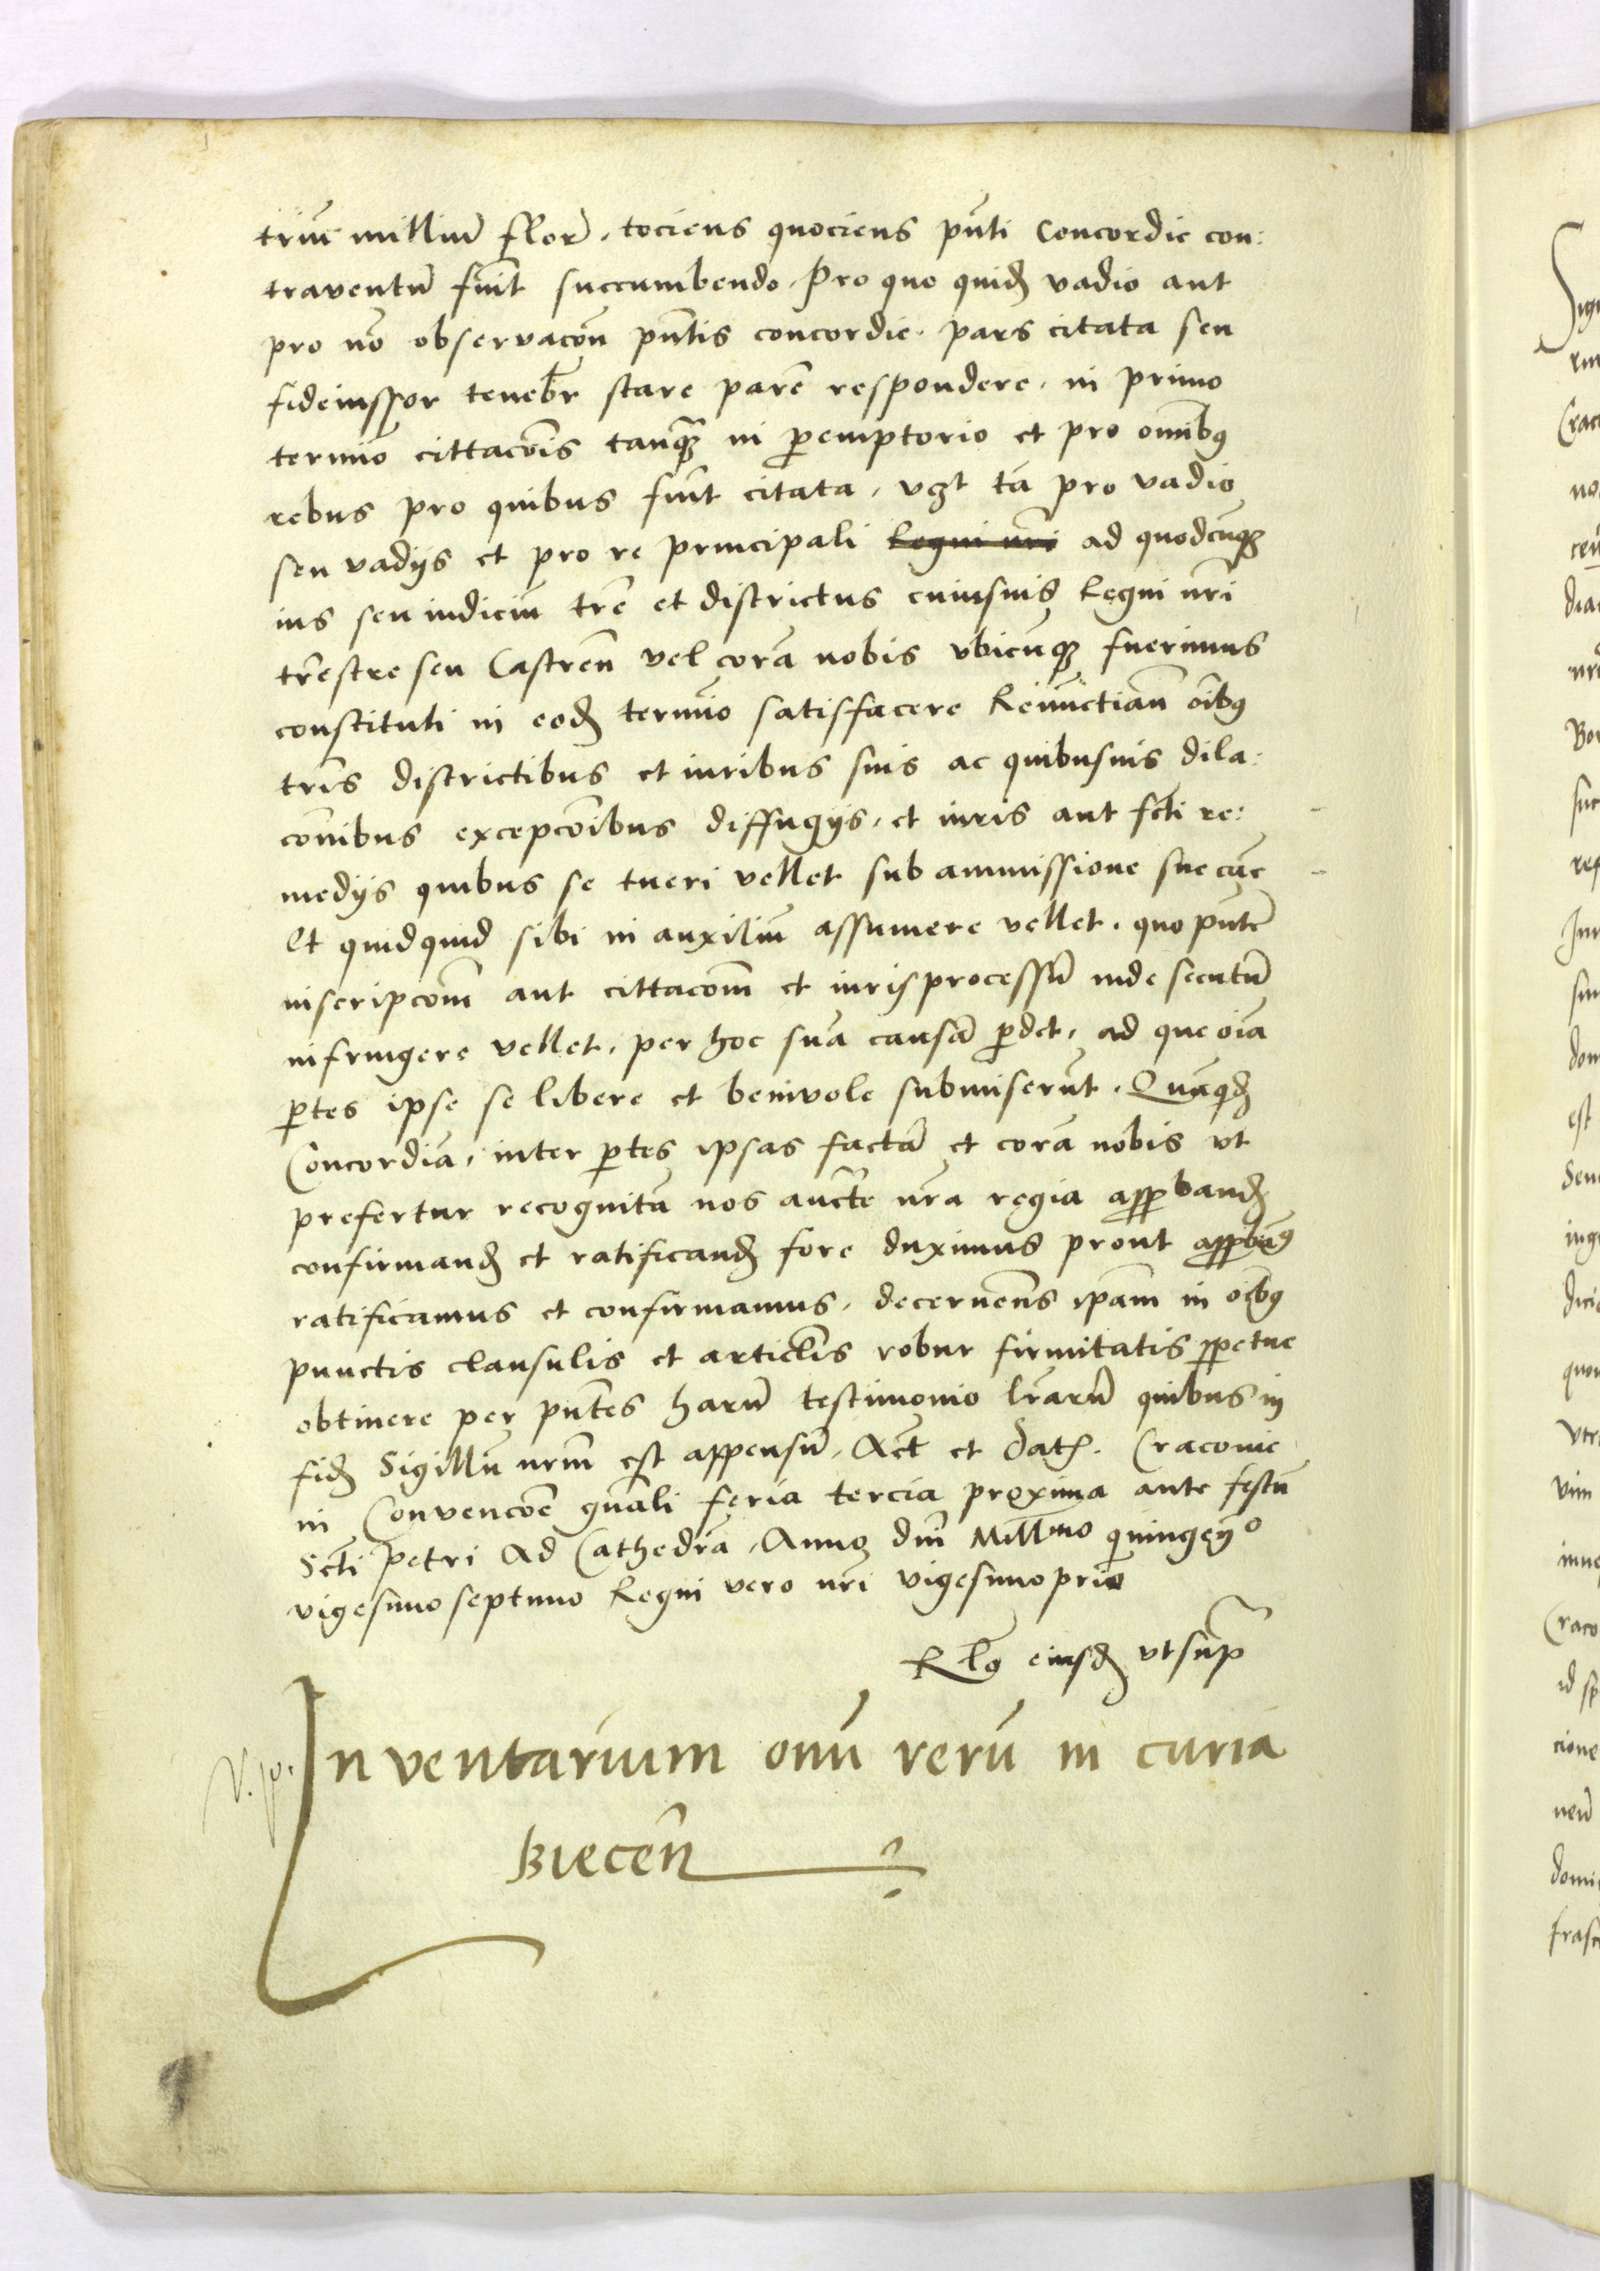 triũ milliũ florẽ. tociens quociens pñti Concordie con:
traventũ fuit̃ succumbendo. Pro quo quidẽ vadio aut
pro nõ observacõn pñtis concordie. pars citata seu
fideiussor teneb̃r stare parẽ respondere. in primo
termiõ cittacõis tanq̃ in peremptorio et pro omñibus
rebus pro quibus fuit̃ citata, vʒt tã pro vadio
seu vadijs et pro re principali Regni nri ad quodcũqʒ
ius seu iudiciũ tr̃e et districtus cuiusuis Regni nr̃i
tr̃estre seu Castreñ vel corã nobis vbicũqʒ fuerimus
constituti in eodẽ termĩo satisfacere Renũctiañ oĩbus
tr̃is districtibus et iuribus suis ac quibusuis dila:
cõnibus excepcõnibus diffugijs. et iuris aut fc̃ti re:
medijs quibus se tueri vellet sub ammissione sue cãe
Et quidquid sibi in auxiliũ assumere vellet. quo pñtẽ
inscripcõm aut cittacõm et iurisprocessũ inde secutũ
infringere vellet. per hoc suã causã perdet. ad que oĩa
partes ipse se libere et benivole submiserũt. Quãqdẽ
Concordiã. inter partes ipsas factã et corã nobis vt
prefertur recognitã nos auct̃e nr̃a regia approbandẽ
confirmandẽ et ratificandẽ fore duximus prout approbam9
ratificamus et confirmamus. decerneñs ipãm in oĩbus
punctis clausulis et articl̃is robur firmitatis perpetue
obtinere per pñtes harũ testimonio lr̃arũ quibus in
fidẽ Sigillũ nrm̃ est appensũ. Act̃ et Dat. Cracovie
in Convencõe gnãli feria tercia proxima ante festũ
Sc̃ti petri Ad Cathedrã. Anno dñi Millmo quingeño
vigesimo septimo Regni vero nr̃i vigesimo prio
Rl̃o eiusdẽ vt sup̃
V. po. Inventarium om̃ũ rerũ in curia
Bieceñ